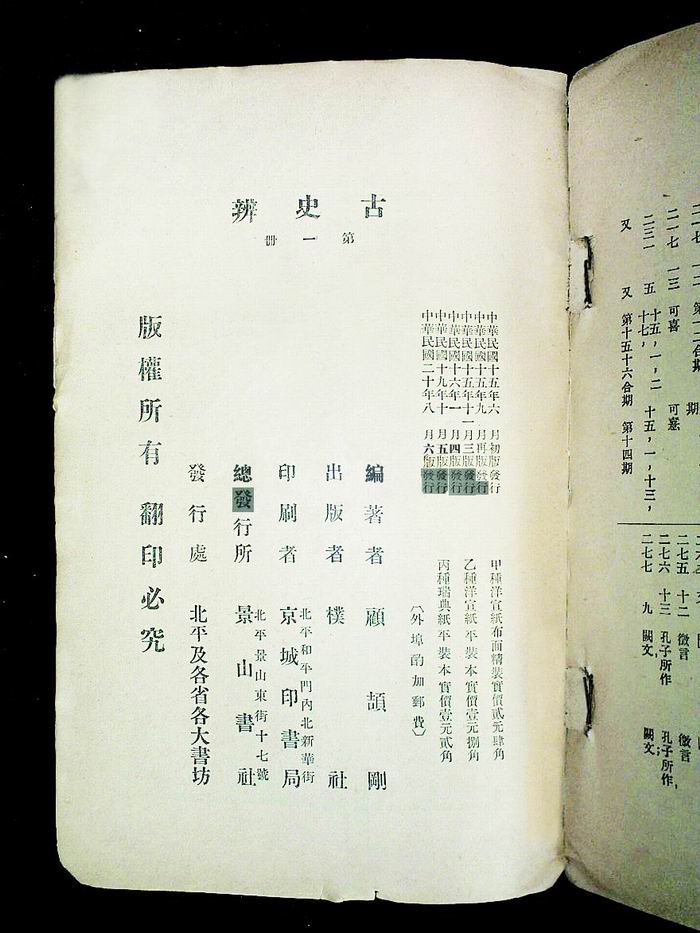 二一七 一三 可喜 可憙
二三一 五 十五,一,二十七, 十五,一,十三,
又 又 第十五十六合期 第十四期
二七五 十二 徵言 徵言
二七六 十三 孔子所作 孔子所作,
二七七 九 闕文, 闕文;
古史辨
第一冊
中華民國十五年六月初版發行
中華民國十五年九月再版發行
中華民國十五年十一月三版發行
中華民國十六年一月四版發行
中華民國十九年十月五版發行
中華民國二十年八月六版發行
甲種洋宣紙布面精裝實價貳元肆角
乙種洋宣紙平裝本實價壹元捌角
丙種瑞典紙平裝本實價壹元貳角
(外埠酌加郵費)
編著者 顧頡剛
出版者 樸社
北平和平門內北新華街
印刷者 京城印書局
北平景山東街十七號
總發行所 景山書社
發行處 北平及各省各大書坊
版權所有 翻印必究